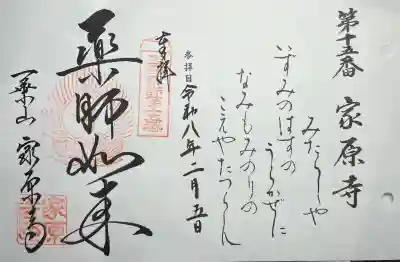 第十五番 家原寺
みたらしや
いずみのはすの
うらかぜに
なみもみのりの
こゑやたつらん
参拝日 令和八年二月五日
奉拝
薬師如来
一乗山 家原寺